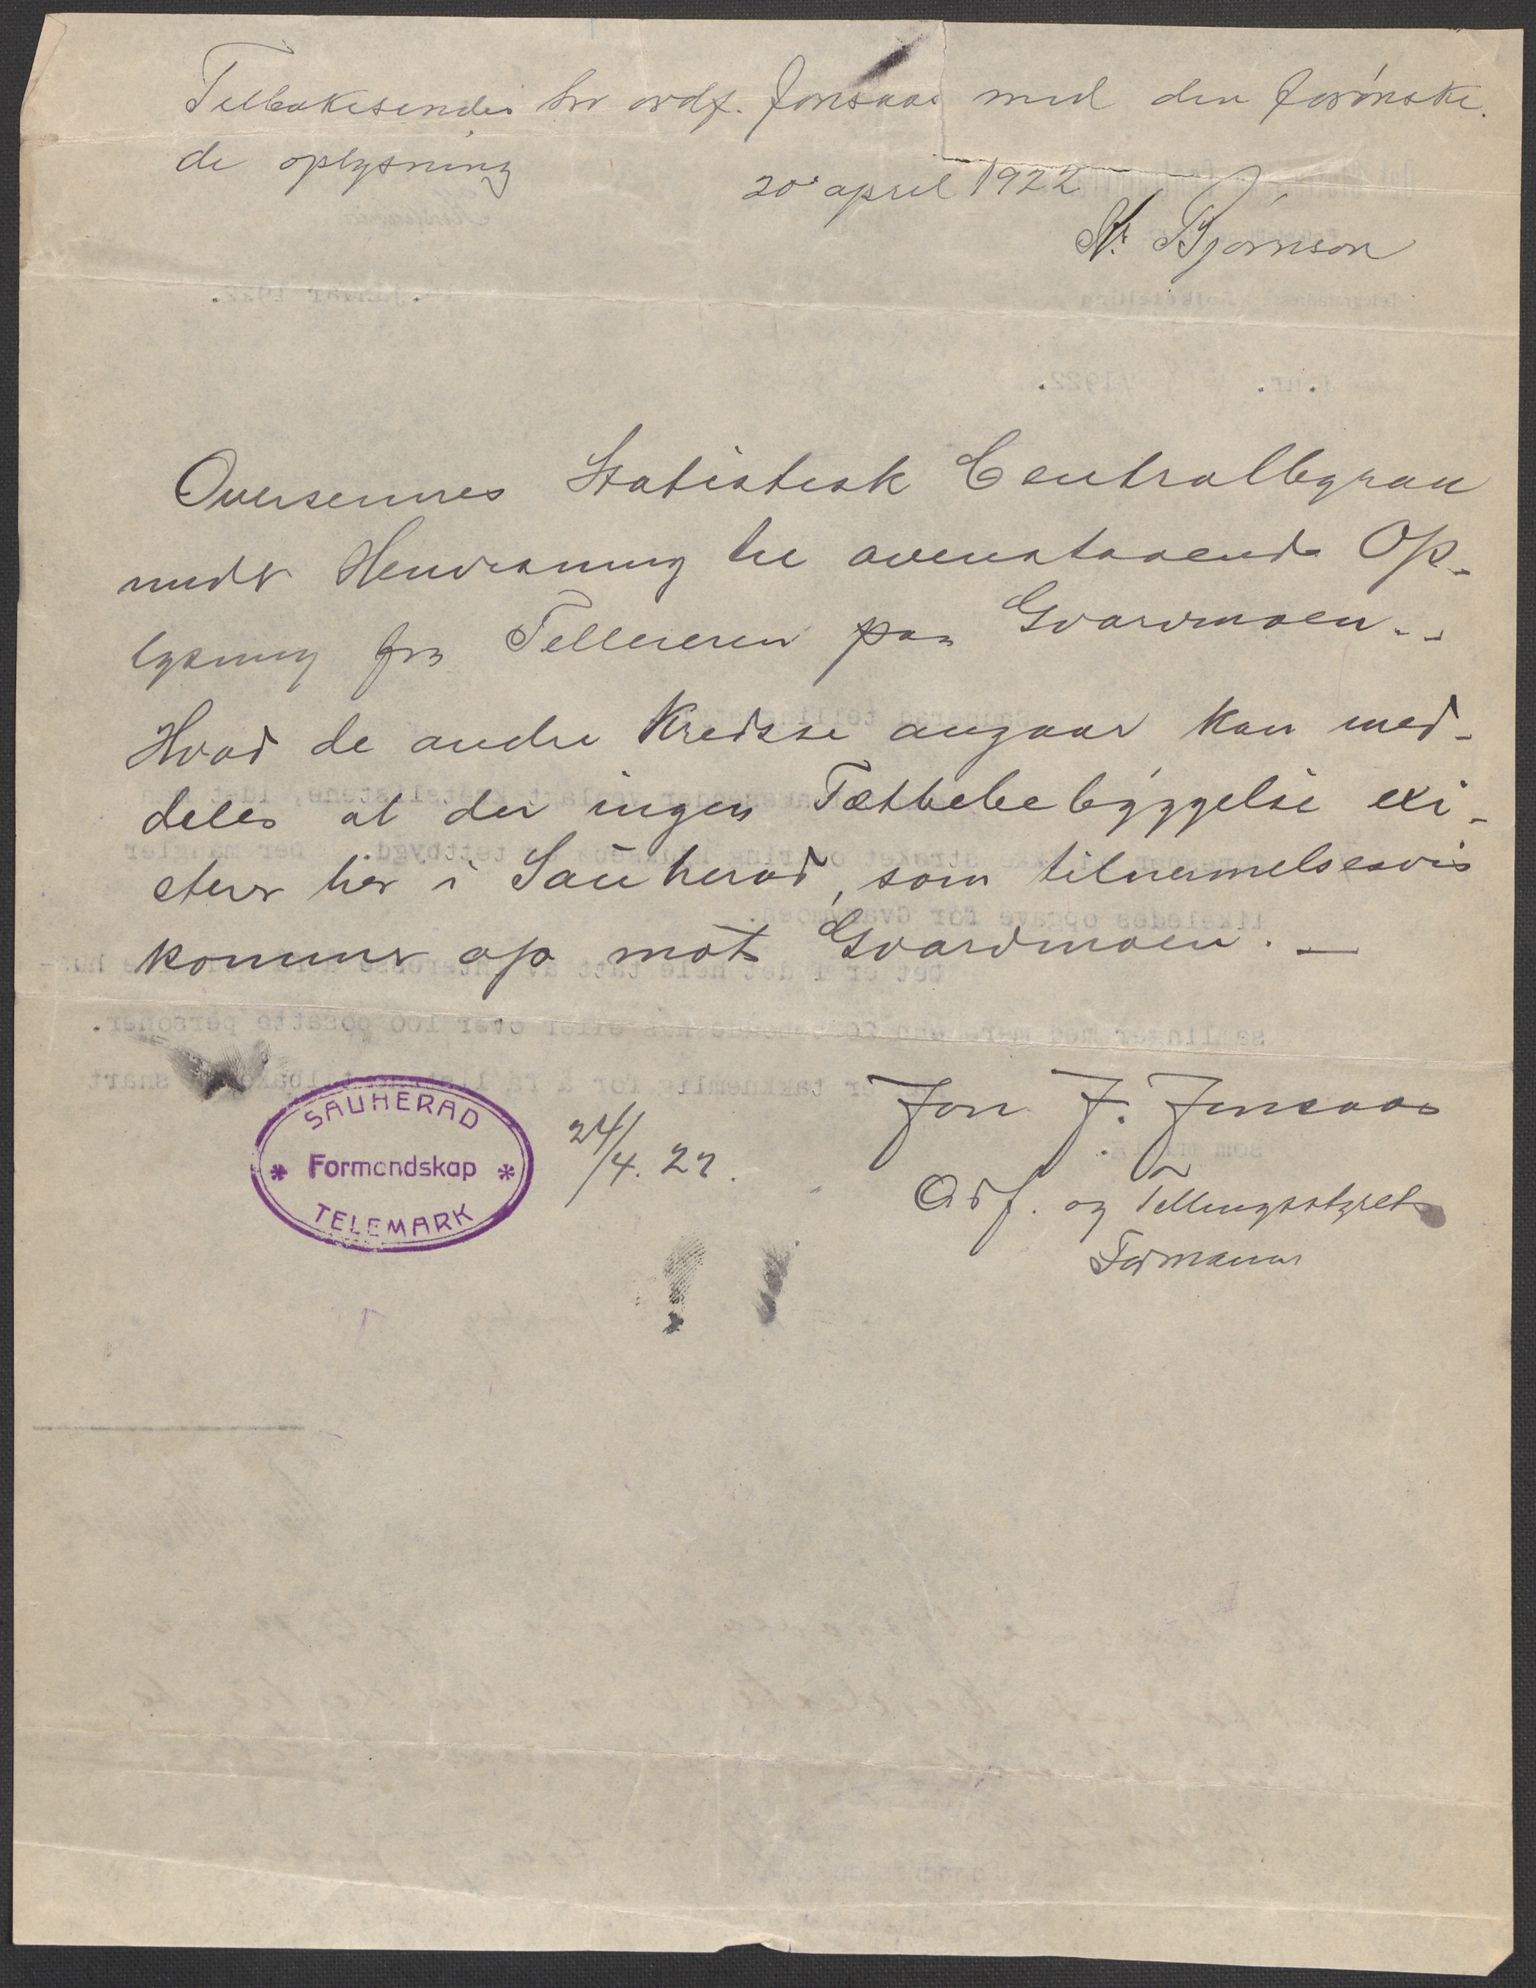 Tilbakesendes hr ordf. Jonsaas med den forønske-
de oplysning
20 april 1922
N. Bjørnson
Oversennes Statistisk Centralbyraa
med Henvisning til ovenstaaende Op-
lysning fra Tellereren paa Gvardmoen. -
Hvad de andre Kredsse angaar kan med-
deles at der ingen Tætbebebyggelse exi-
sterer her i Sauherad, som tilnermelsesvis
kommer op mot Gvardmoen. —
SAUHERAD
* Formandskap *
TELEMARK
24/4. 22.
Jon J. Jonsaas
Ordf. og Tellingsstyrets
Formann